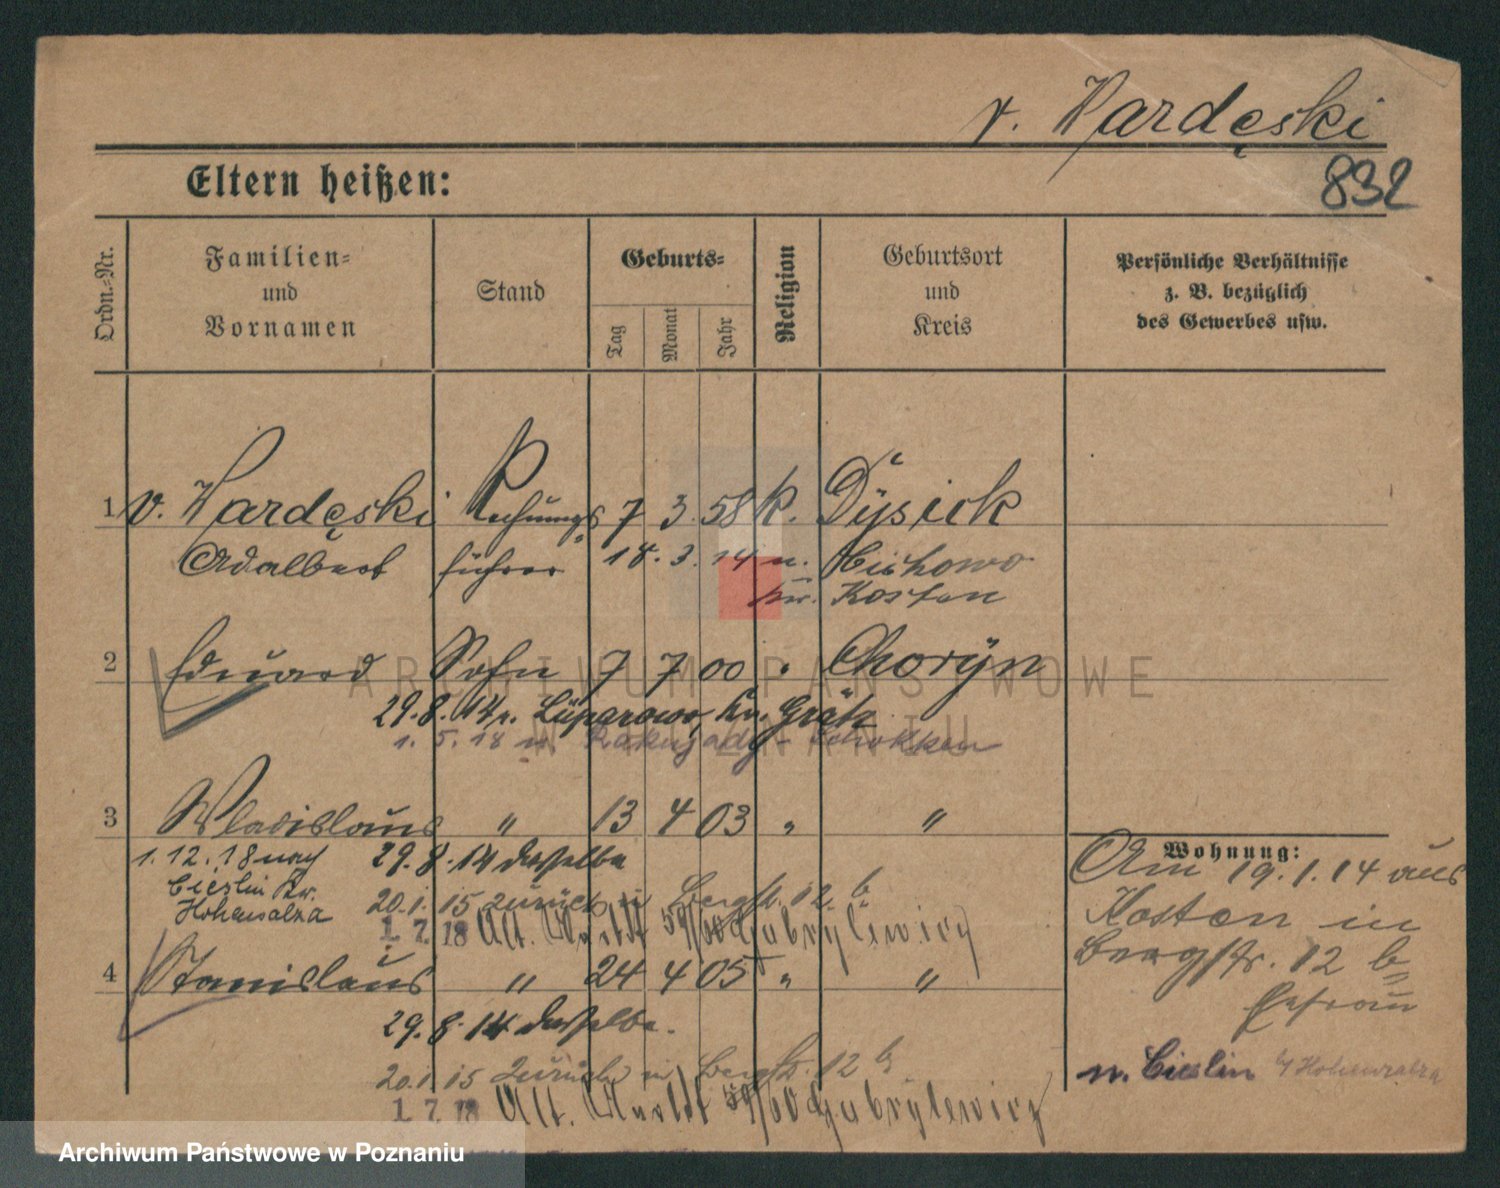 v. Hardęski
832
Eltern heißen:
Ordn.-Nr.
Familien-
und
Vornamen
Stand
Geburts-
Tag
Monat
Jahr
Religion
Geburtsort
und
Kreis
Persönliche Verhältnisse
z. B. bezüglich
des Gewerbes usw.
1 v. Hardęski Rechnungs 7 3. 58 k.
Adalbert führer 18. 3. 14 n.
Kr. Kosten
2 Eduard Sohn 9 7 00 Choryn
29.8.14 n. Kr. Grätz
1. 5. 18 n.
3 Wladislaus " 13 4 03 " "
1. 12. 18 nach 29. 8. 14 dasselbe
Cieslin Kr. 20.1.15 zurück n. Bergstr. 12 b
Hohensalza 1. 7. 18 Alt. Markt 59/60 Gabrylewicz
4 Stanislaus " 24 4 05 " "
29. 8. 14 dasselbe.
20.1.15 zurück n. Bergstr. 12 b
1. 7. 18 Alt. Markt 59/60 Gabrylewicz
Wohnung:
Am 19.1.14 aus
Kosten in
Bergstr. 12 b
Ehefrau
n. Cieslin b/ Hohensalza
ARCHIWUM PAŃSTWOWE
W POZNANIU
Archiwum Państwowe w Poznaniu